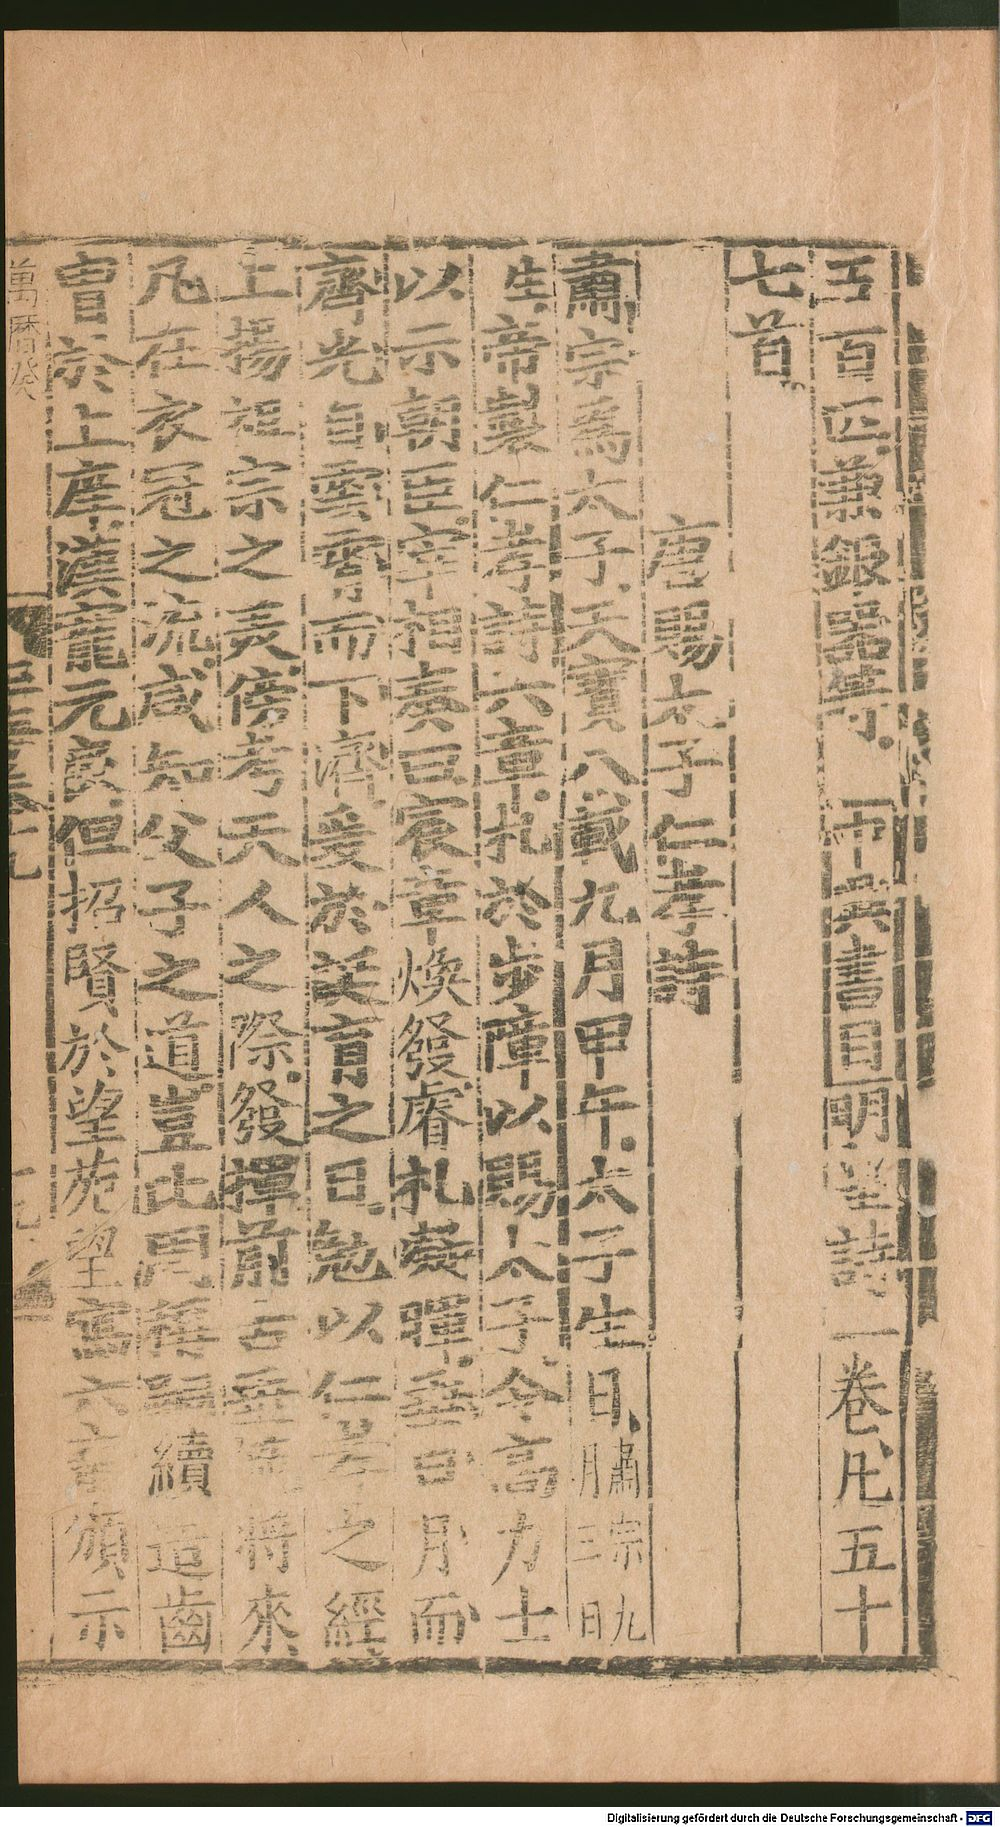 五百匹兼銀器等中興書目明皇詩一卷凡五十
七首
唐賜太子仁孝詩
肅宗爲太子天寶八載九月甲午太子生日肅宗九月三日
生帝製仁孝詩六章札於步障以賜太子令高力士
以示朝臣宰相奏曰宸章煥發睿札凝暉垂日月而
齊光自雲霄而下濟爰於誕育之日勉以仁孝之經
上揚祖宗之美傍考天人之際發揮前古垂 將來
凡在衣冠之流咸知父子之道豈比周 續 造齒
胄於上座漢寵元良但招賢於望苑望寫六章頒示
萬曆癸